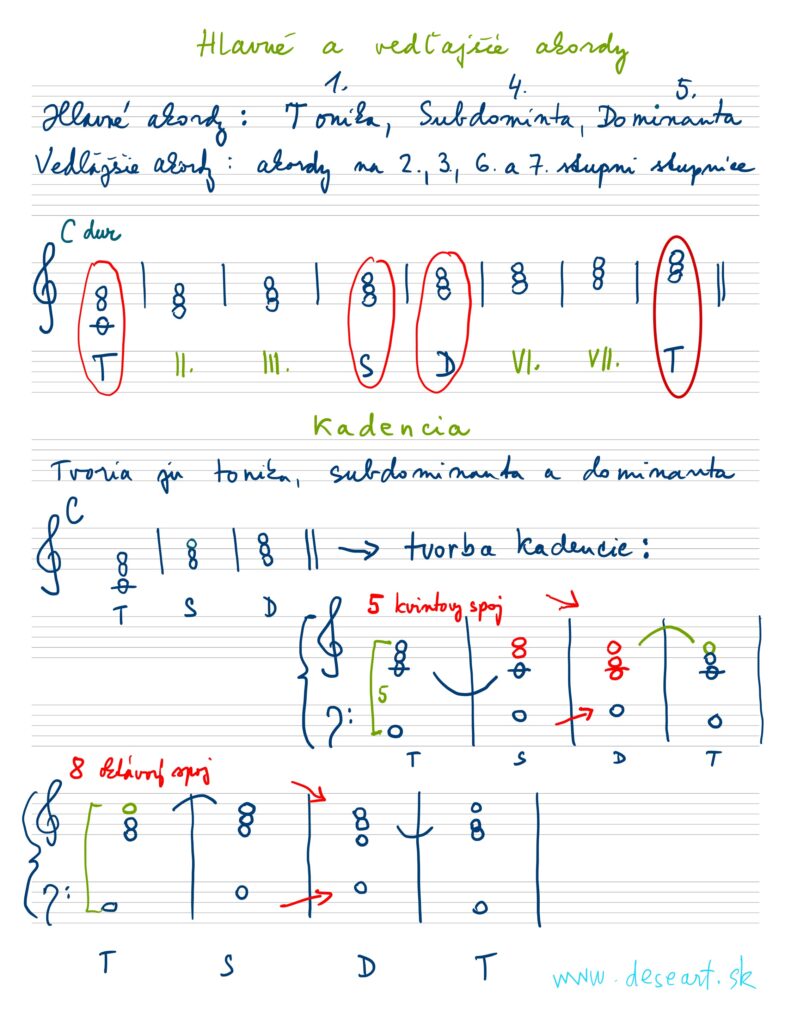 Hlavné a vedľajšie akordy
1. 4. 5.
Hlavné akordy: Tonika, Subdominta, Dominanta
Vedlǎjšie akordy: akordy na 2., 3., 6. a 7. stupni stupnice
C dur
T II. III. S D VI. VII. T
Kadencia
Tvoria ju tonika, subdominanta a dominanta
C
→ tvorba kadencie:
T S D
5 kvintovy spoj
5
T S D T
8 oktávový spoj
T S D T
www.deseart.sk